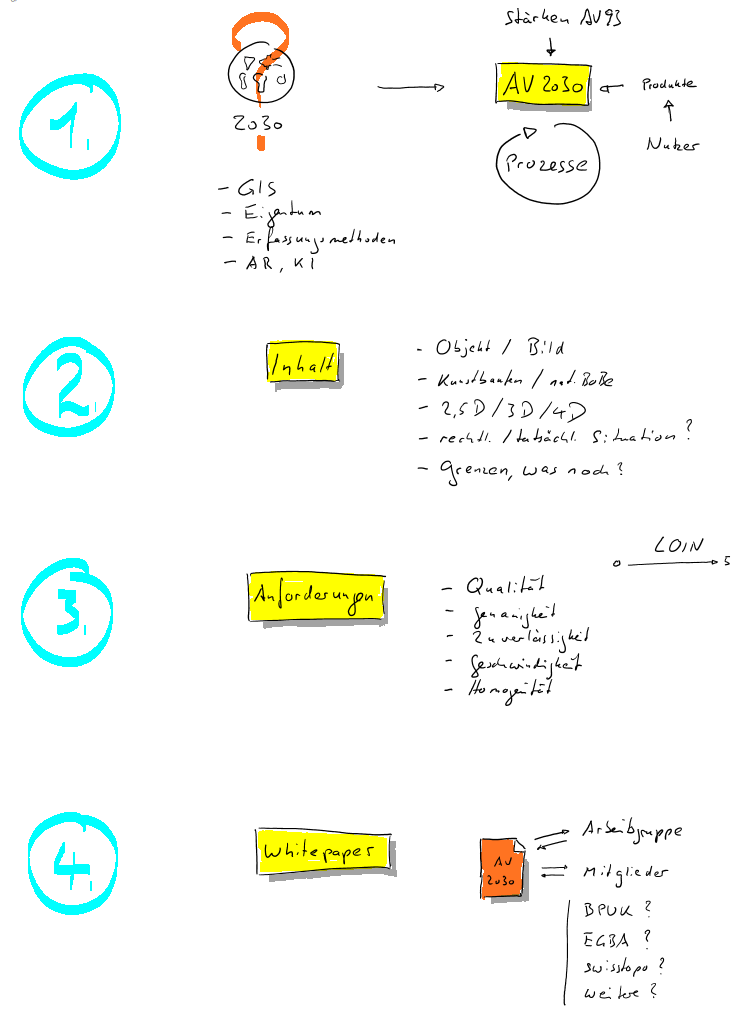 1.
2030
- GIS
- Eigentum
- Erfassungsmethoden
- AR, KI
Stärken AV93
AV 2030
Produkte
Nutzer
Prozesse
2.
Inhalt
- Objekt / Bild
- Kunstbauten / nat. BoBe
- 2,5D / 3D / 4D
- rechtl. / tatsächl. Situation?
- Grenzen, was noch?
3.
Anforderungen
LOIN
0 5
- Qualität
- Genauigkeit
- Zuverlässigkeit
- Geschwindigkeit
- Homogenität
4.
Whitepaper
AV
2030
Arbeitsgruppe
Mitglieder
BPUK ?
EGBA ?
swisstopo ?
weitere ?